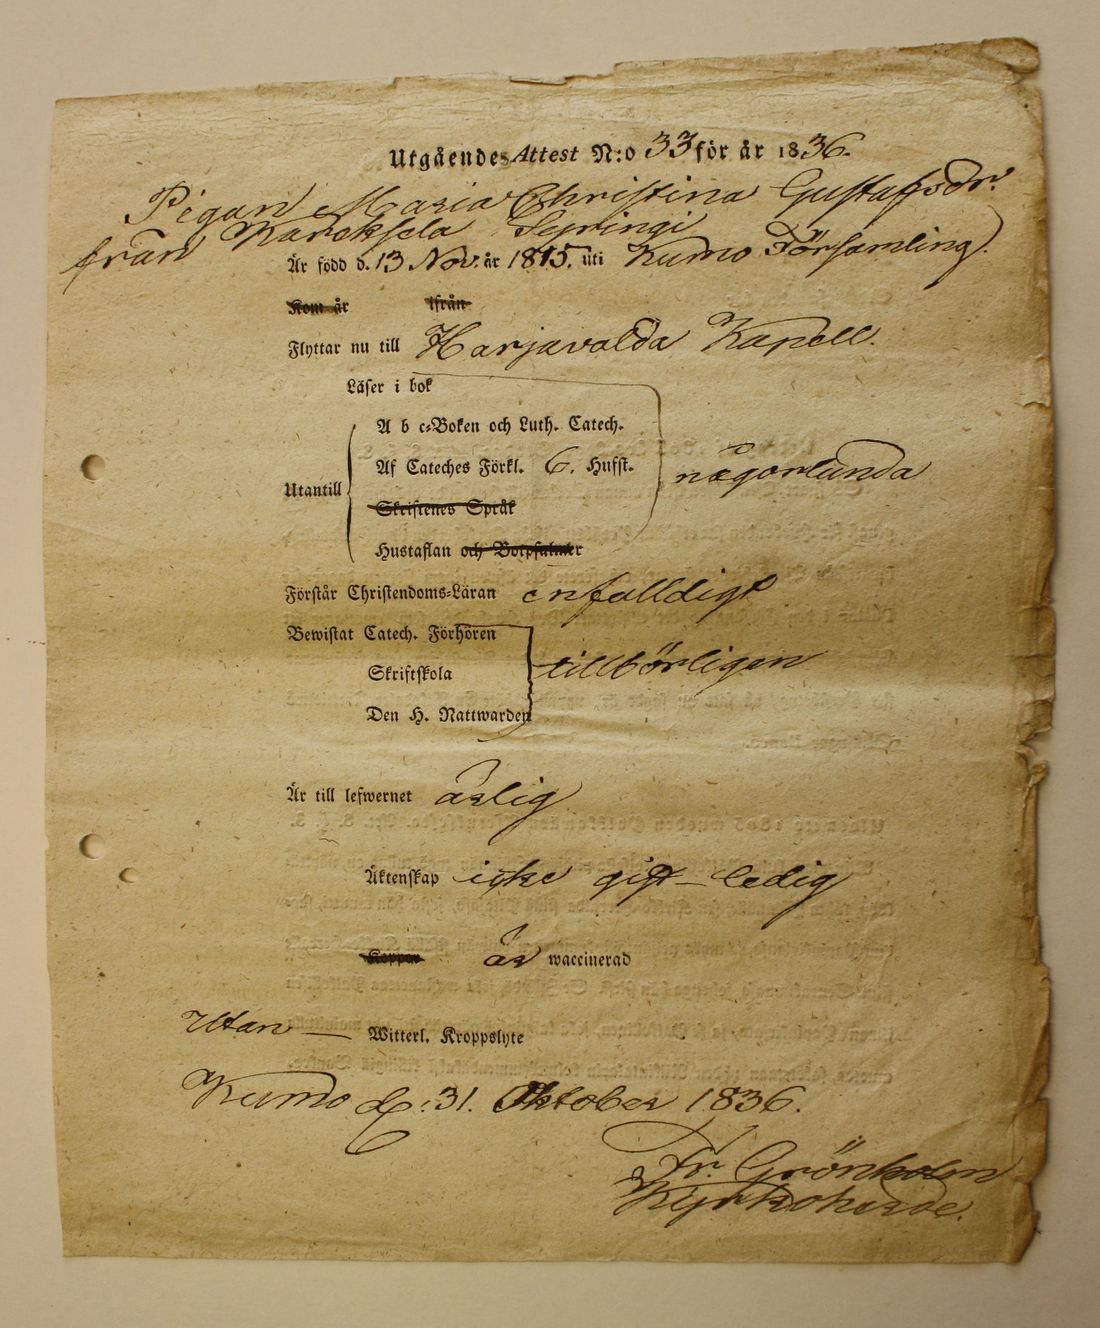 Utgående Attest N:o 33 för år 1836.
Pigan Maria Christina Gustafsdr.
från Karcksela Sepringi
Är född d. 13 Nov. år 1815. uti Kumo Församling.
Kom år ifrån
Flyttar nu till Harjavalda Kapell.
Läser i bok
A b c-Boken och Luth. Catech.
Af Cateches Förkl. 6. Hufst. någorlunda
Utantill
Skriftenes Språk
Hustaflan och Botpsalmer
Förstår Christendoms-Läran enfalldigt
Bewistat Catech. Förhören
Skriftskola tillbörligen
Den H. Nattwarden
Är till lefwernet ärlig
Äktenskap icke gift – ledig
Koppor är waccinerad
Utan — Witterl. Kroppslyte
Kumo d. 31. Oktober 1836.
Fr. Grönholm
Kyrkoherde.